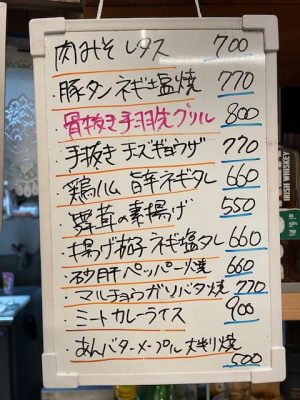 肉みそレタス 700
・豚タンネギ塩焼 770
骨抜き手羽先グリル 800
・手抜きチーズギョウザ 770
・鶏ハム旨辛ネギタレ 660
・舞茸の素揚げ 550
・揚げ茄子ネギ塩タレ 660
・砂肝ペッパー焼 660
・マルチョウガツバタ焼 770
・ミートカレーライス 900
・あんバターメープル大判焼
500
IRISH WHISKEY